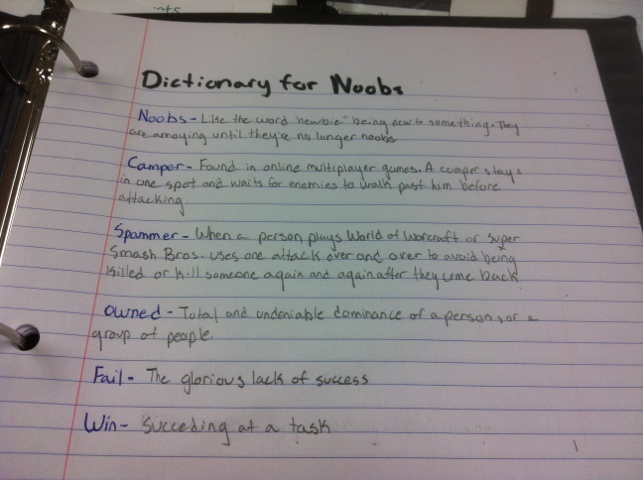 Dictionary for Noobs
Noobs - Like the word "newbie" being new to something. They
are annoying until they're no longer noobs.
Camper - Found in online multiplayer games. A camper stays
in one spot and waits for enemies to walk past him before
attacking
Spammer - When a person plays World of Warcraft or Super
Smash Bros. uses one attack over and over to avoid being
killed or kill someone again and again after they come back
Owned - Total and undeniable dominance of a person, or a
group of people.
Fail - The glorious lack of success
Win - Succeding at a task